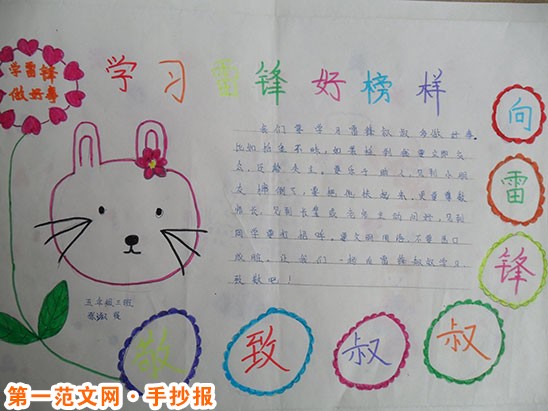 学雷锋
做好事
学习雷锋好榜样
我们要学习雷锋叔叔多做好事
比如拾金不昧，如果捡到钱要立即交
公，还给失主。要乐于助人，见到小朋
友摔倒了，要把他扶起来。要尊敬
师长，见到长辈或老师主动问好，见到
同学要打招呼。要文明用语，不要恶口
成脏。让我们一起向雷锋叔叔学习，
致敬吧！
五年级三班
向
雷
锋
叔
叔
致
敬
第一范文网·手抄报